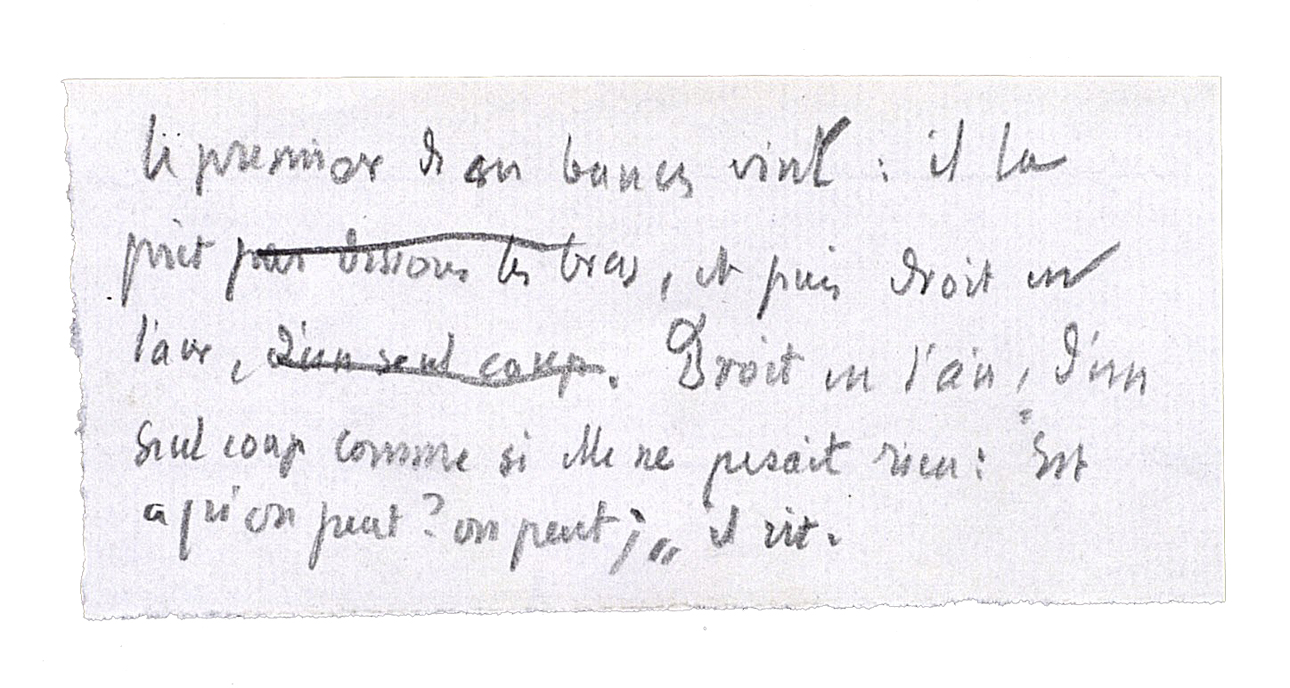 le premier d'en bancs vint : il la
prit par dessous les bras, et puis droit en
l'air, d'un seul coup. Droit en l'air, d'un
seul coup comme si elle ne pesait rien : "Est
ce qu'on peut ? on peut ; „ il rit.